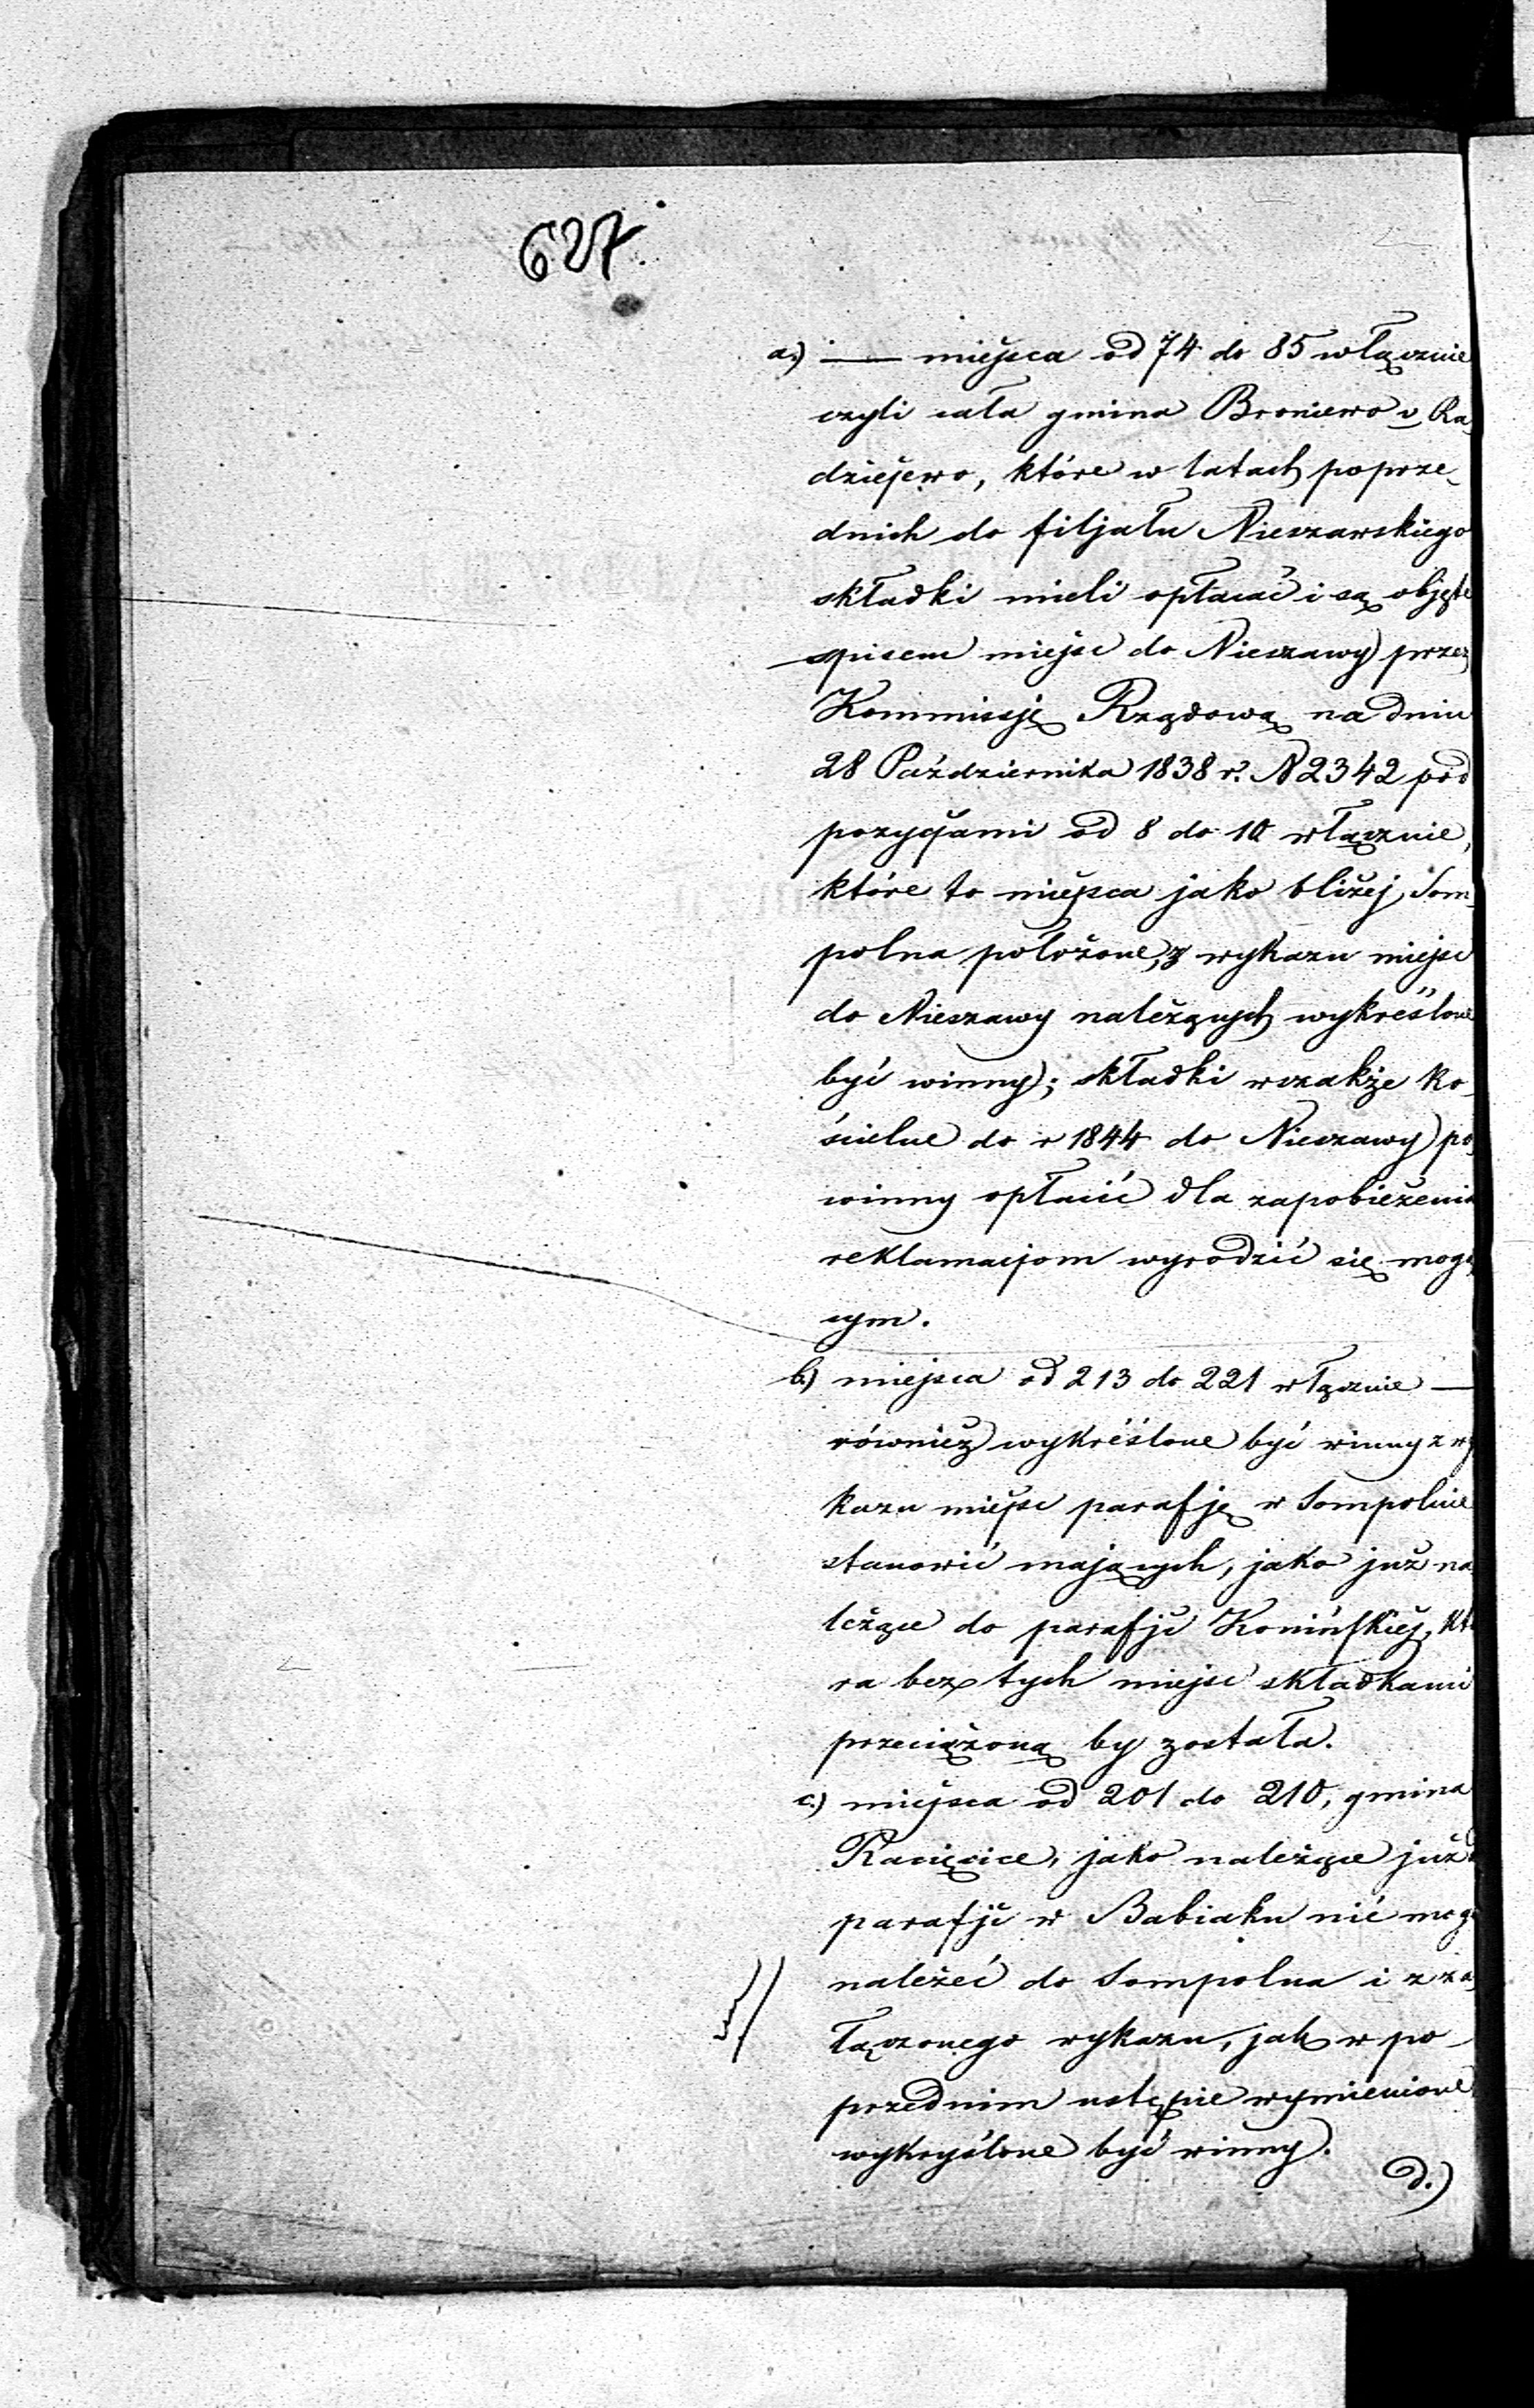 627.
a.) — miejsca od 74 do 85 włącznie
czyli cała gmina Broniewo v Ra-
dziejewo, które w latach poprze-
dnich do filjału Nieszawskiego
składki mieli opłacać i są objęte
spisem miejsc do Nieszawy przez
Kommissję Rządową na dniu
28 Października 1838 r. N 2342 pod
pozycjami od 8 do 10 włącznie,
które to miejsca jako bliżej Som-
polna położone, z wykazu miejsc
do Nieszawy należących wykreślone
być winny; składki wszakże ko-
ścielne do r 1844 do Nieszawy po-
winny opłacić dla zapobieżenia
reklamacjom wyrodzić się mogą-
cym.
b.) miejsca od 213 do 221 włącznie —
również wykréślone być winny z wy
kazu miejsc parafję w Sompolnie
stanowić mających, jako już na
leżące do parafji Konińskiej, któ
ra bez tych miejsc składkami
przeciążoną by została.
c.) miejsca od 201 do 210, gmina
Racięcice, jako należące już
parafji w Babiaku nié mogą
należeć do Sompolna i z za-
łączonego wykazu, jak w po-
przednim ustępie wymienione
wykryślone być winny.
d.)